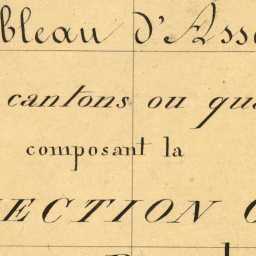 bleau d'Asse
cantons ou qua
composant la
ECTION C